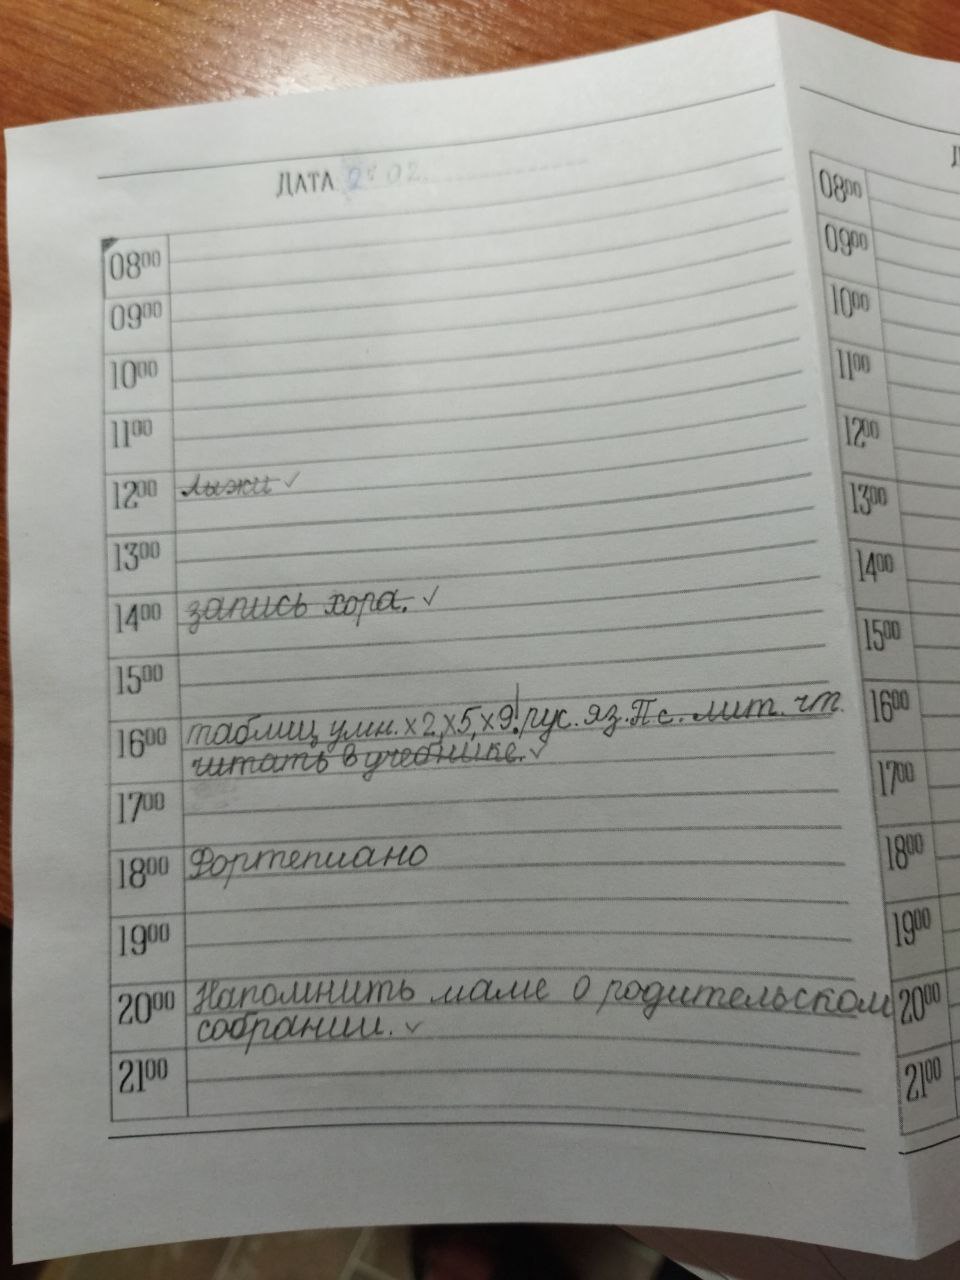 ДАТА 02.
08⁰⁰
09⁰⁰
10⁰⁰
11⁰⁰
12⁰⁰ лыжи ✓
13⁰⁰
14⁰⁰ запись хора. ✓
15⁰⁰
16⁰⁰ таблиц умн. x2, x5, x9! рус. яз. П с. лит. чт.
читать в учебнике. ✓
17⁰⁰
18⁰⁰ Фортепиано
19⁰⁰
20⁰⁰ Напомнить маме о родительском
собрании. ✓
21⁰⁰
08⁰⁰
09⁰⁰
10⁰⁰
11⁰⁰
12⁰⁰
13⁰⁰
14⁰⁰
15⁰⁰
16⁰⁰
17⁰⁰
18⁰⁰
19⁰⁰
20⁰⁰
21⁰⁰